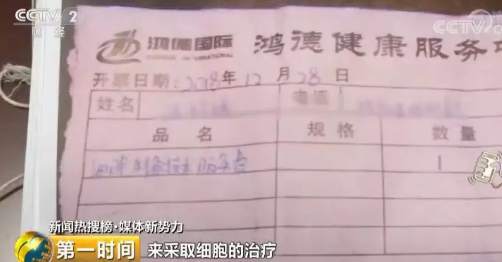 CCTV 2
财经
CCTV
鸿德国际 鸿德健康服务
开票日期：2018年12月28日
姓名 电话
品名 规格 数量
1
新闻热搜榜·媒体新势力
第一时间 来采取细胞的治疗